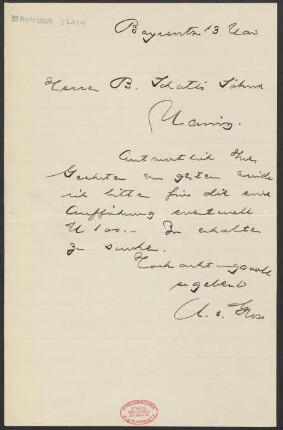 Bayreuth 13 Mai
Herren B. Schott's Söhne
Mainz.
Antwortlich Ihres
Geehrten von gestern würde
ich bitten für die erste
Aufführung eventuell
M 100.— zu erhalten
zu suchen.
Hochachtungsvoll
ergebenst
A. v. Gross